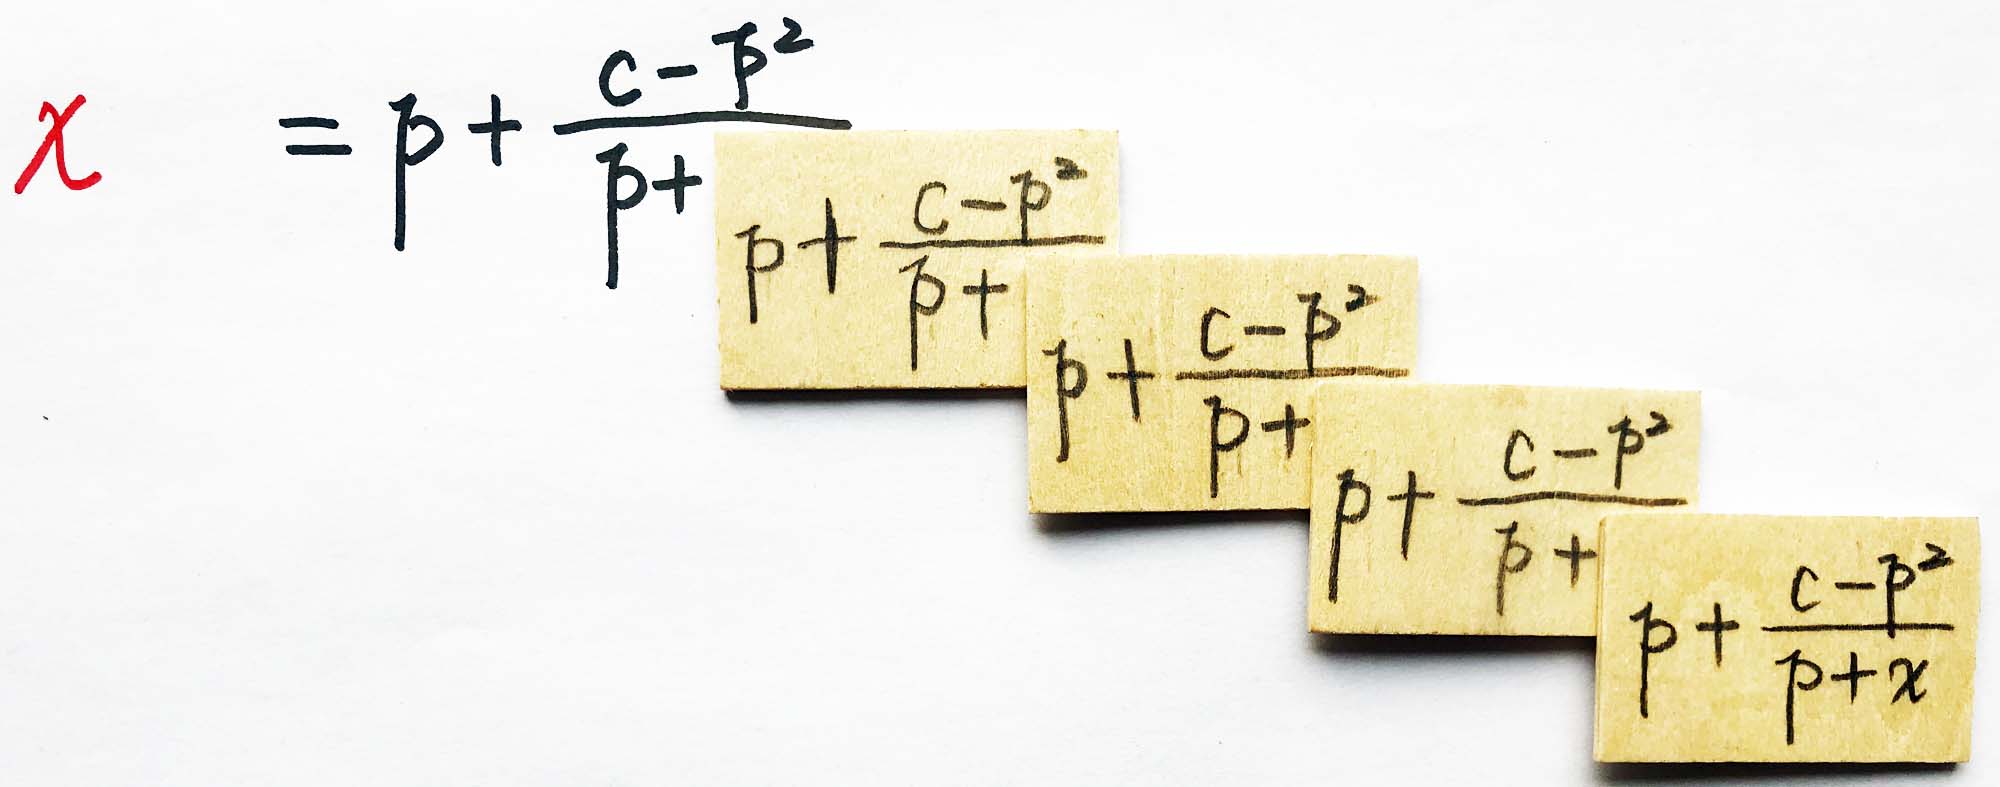 x = p + \frac{c-p^2}{p+
p + \frac{c-p^2}{p+
p + \frac{c-p^2}{p+
p + \frac{c-p^2}{p+
p + \frac{c-p^2}{p+x}